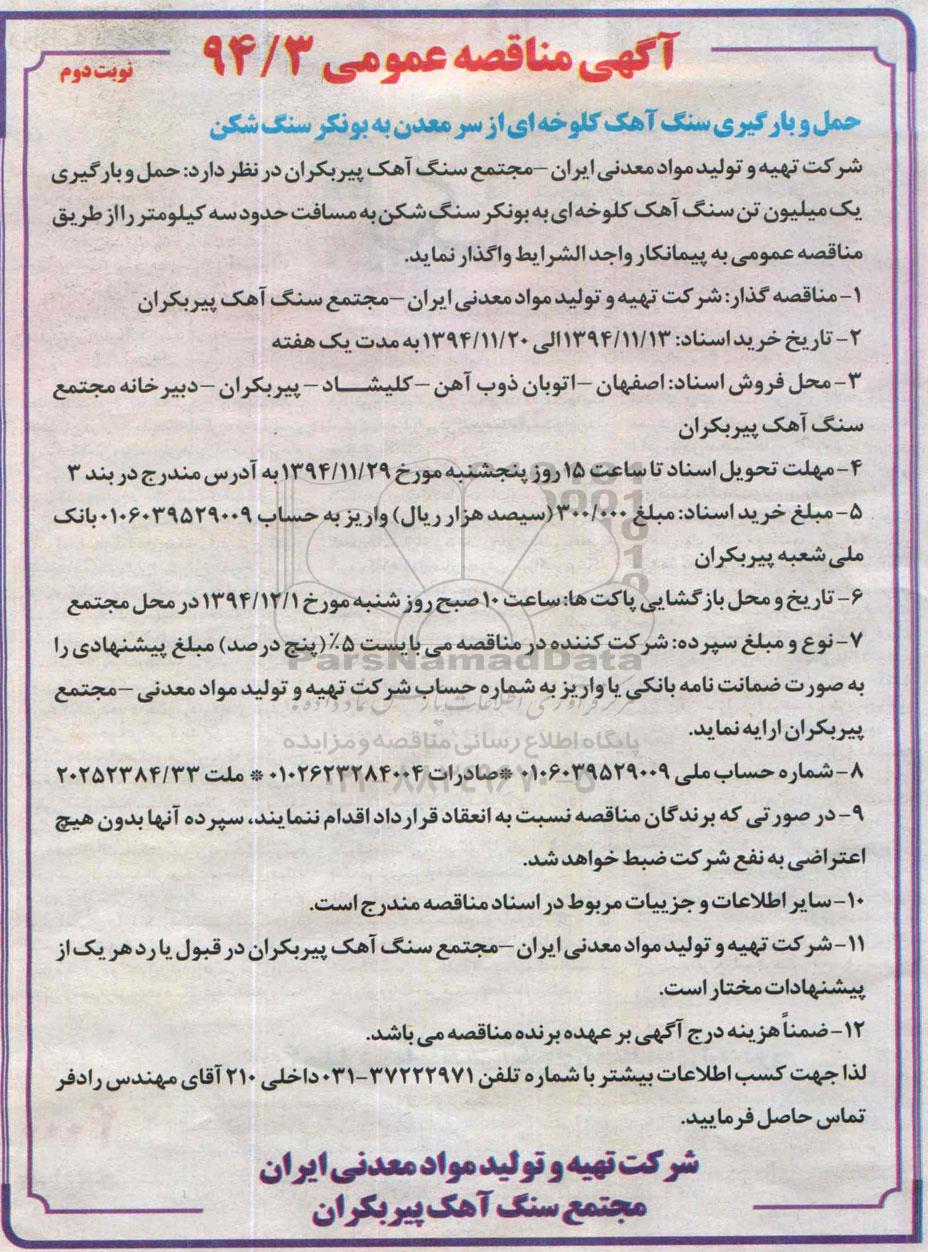 آگهی مناقصه عمومی ۹۴/۳
نوبت دوم
حمل و بارگیری سنگ آهک کلوخه ای از سر معدن به بونکر سنگ شکن
شرکت تهیه و تولید مواد معدنی ایران –مجتمع سنگ آهک پیربکران در نظر دارد: حمل و بارگیری
یک میلیون تن سنگ آهک کلوخه ای به بونکر سنگ شکن به مسافت حدود سه کیلومتر را از طریق
مناقصه عمومی به پیمانکار واجد الشرایط واگذار نماید.
۱- مناقصه گذار: شرکت تهیه و تولید مواد معدنی ایران –مجتمع سنگ آهک پیربکران
۲- تاریخ خرید اسناد: ۱۳۹۴/۱۱/۱۳ الی ۱۳۹۴/۱۱/۲۰ به مدت یک هفته
۳- محل فروش اسناد: اصفهان –اتوبان ذوب آهن –کلیشاد – پیربکران –دبیرخانه مجتمع
سنگ آهک پیربکران
۴- مهلت تحویل اسناد تا ساعت ۱۵ روز پنجشنبه مورخ ۱۳۹۴/۱۱/۲۹ به آدرس مندرج در بند ۳
۵- مبلغ خرید اسناد: مبلغ ۳۰۰/۰۰۰ (سیصد هزار ریال) واریز به حساب ۰۱۰۶۰۳۹۵۲۹۰۰۹ بانک
ملی شعبه پیربکران
۶- تاریخ و محل بازگشایی پاکت ها: ساعت ۱۰ صبح روز شنبه مورخ ۱۳۹۴/۱۲/۱ در محل مجتمع
۷- نوع و مبلغ سپرده: شرکت کننده در مناقصه می بایست ۵٪ (پنج درصد) مبلغ پیشنهادی را
به صورت ضمانت نامه بانکی یا واریز به شماره حساب شرکت تهیه و تولید مواد معدنی –مجتمع
پیربکران ارایه نماید.
۸- شماره حساب ملی ۰۱۰۶۰۳۹۵۲۹۰۰۹ *صادرات ۰۱۰۲۶۲۳۲۸۴۰۰۴ * ملت ۲۰۲۵۲۳۸۴/۳۳
۹- در صورتی که برندگان مناقصه نسبت به انعقاد قرارداد اقدام ننمایند، سپرده آنها بدون هیچ
اعتراضی به نفع شرکت ضبط خواهد شد.
۱۰- سایر اطلاعات و جزییات مربوط در اسناد مناقصه مندرج است.
۱۱- شرکت تهیه و تولید مواد معدنی ایران –مجتمع سنگ آهک پیربکران در قبول یا رد هر یک از
پیشنهادات مختار است.
۱۲- ضمناً هزینه درج آگهی بر عهده برنده مناقصه می باشد.
لذا جهت کسب اطلاعات بیشتر با شماره تلفن ۳۷۲۲۲۹۷۱-۰۳۱ داخلی ۲۱۰ آقای مهندس رادفر
تماس حاصل فرمایید.
شرکت تهیه و تولید مواد معدنی ایران
مجتمع سنگ آهک پیربکران
ParsNamadData
پایگاه اطلاع رسانی مناقصه و مزایده